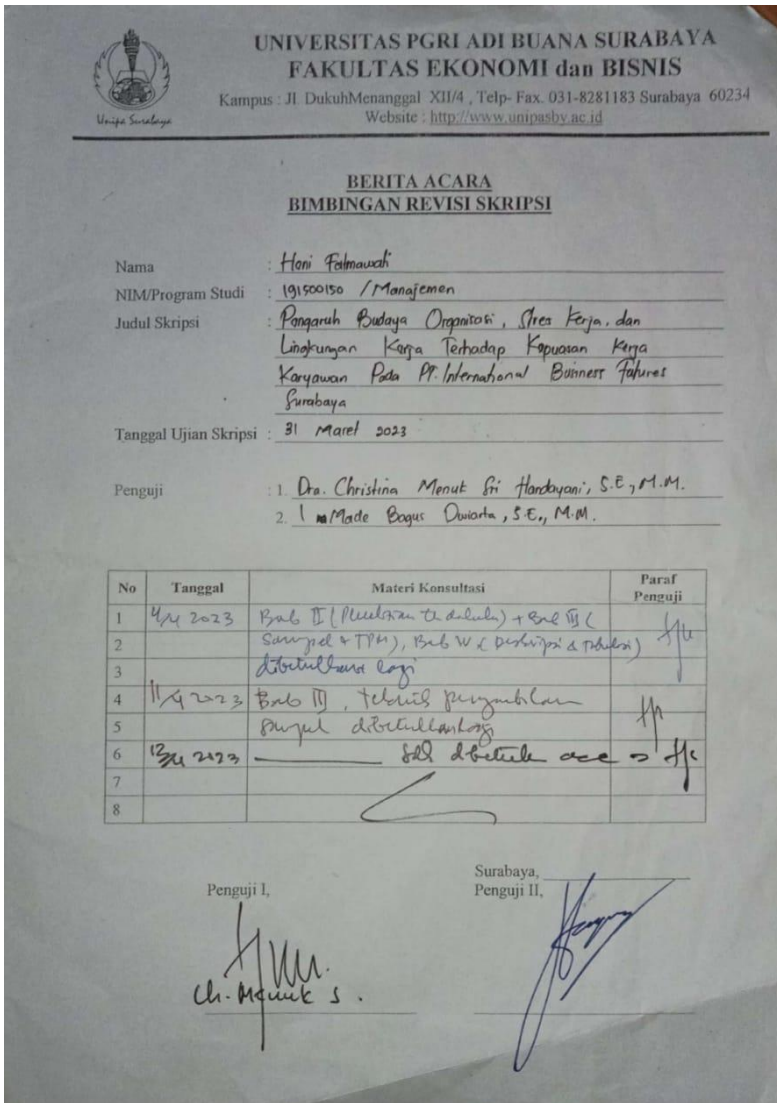 UNIVERSITAS PGRI ADI BUANA SURABAYA
FAKULTAS EKONOMI dan BISNIS
Kampus : Jl. DukuhMenanggal XII/4 , Telp- Fax. 031-8281183 Surabaya 60234
Website : http://www.unipasby.ac.id
Unipa Surabaya
BERITA ACARA
BIMBINGAN REVISI SKRIPSI
Nama : Honi Fatmawati
NIM/Program Studi : 191500150 / Manajemen
Judul Skripsi : Pengaruh Budaya Organisasi, Stres Kerja, dan
Lingkungan Kerja Terhadap Kepuasan Kerja
Karyawan Pada PT. International Business Futures
Surabaya
Tanggal Ujian Skripsi : 31 Maret 2023
Penguji : 1. Dra. Christina Menuk Sri Handayani, S.E., M.M.
2. I Made Bagus Dwiarta, S.E., M.M.
No Tanggal Materi Konsultasi Paraf Penguji
1 4/4 2023 Bab II (Penelitian terdahulu) + Bab III (
2 Sampel + TPM), Bab IV ( Deskripsi & Tabulasi)
3 dibetulkan lagi
4 11/4 2023 Bab III, teknik pengambilan
5 sampel dibetulkan lagi
6 12/4 2023 acc
7
8
Surabaya,
Penguji I, Penguji II,
Ch. Menuk S.